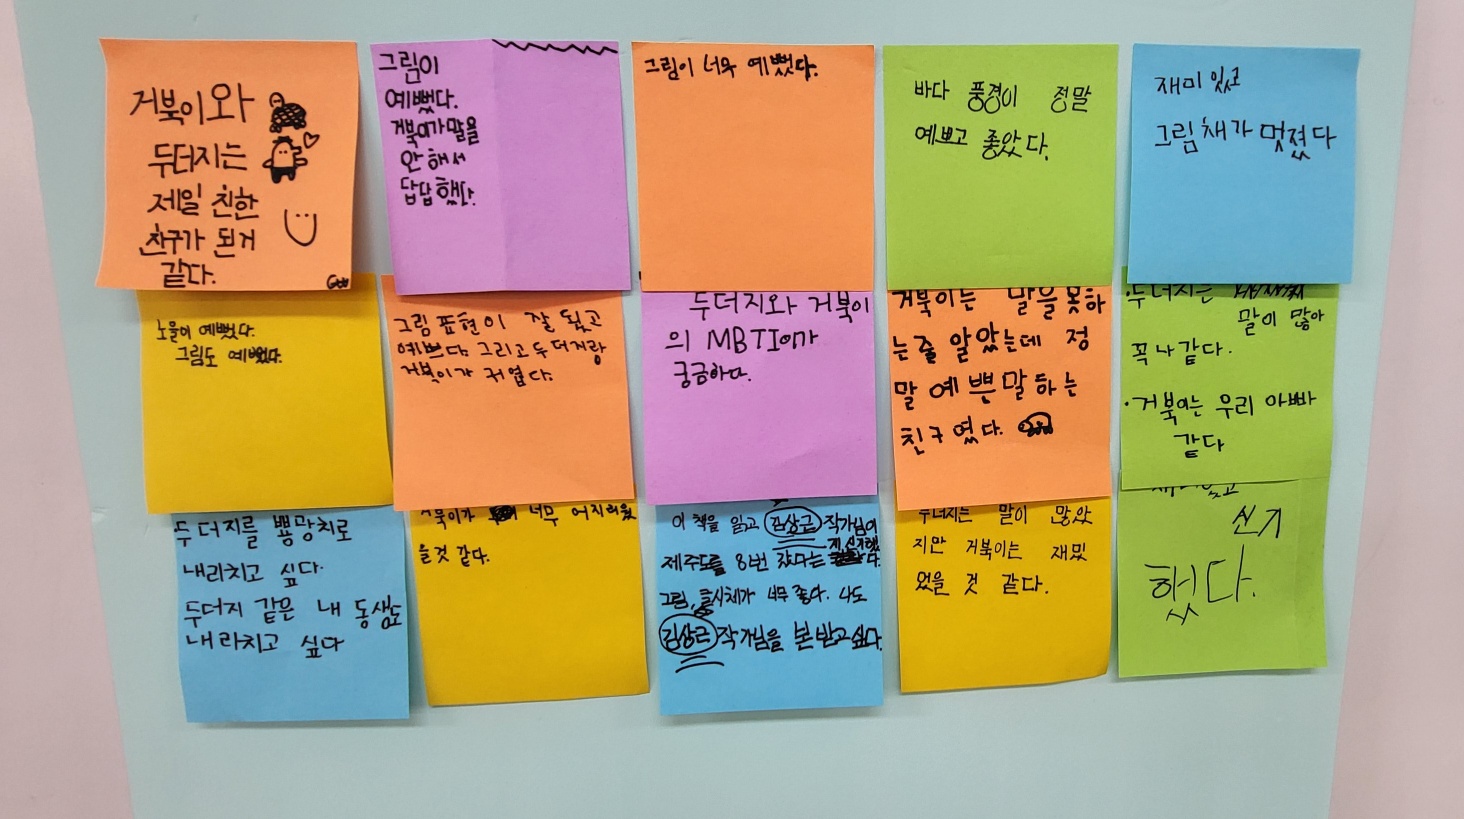 거북이와
두더지는
제일 친한
친구가 된거
같다.
그림이
예뻤다.
거북이가 말을
안 해서
답답했다.
그림이 너무 예뻤다.
바다 풍경이 정말
예쁘고 좋았다.
재미 있고
그림체가 멋졌다
노을이 예뻤다.
그림도 예뻤다.
그림 표현이 잘 됬고
예쁘다. 그리고 두더지랑
거북이가 귀엽다.
두더지와 거북이
의 MBTI가
궁금하다.
거북이는 말을 못하
는줄 알았는데 정
말 예쁜말하는
친구였다.
·두더지는
말이 많아
꼭 나같다.
·거북이는 우리 아빠
같다
두더지를 뿅망치로
내리치고 싶다.
두더지 같은 내 동생도
내리치고 싶다
거북이가 너무 어지러웠
을것 같다.
이 책을 읽고 김상근 작가님이
제주도를 8번 갔다는
그림, 글씨체가 너무 좋다. 나도
김상근 작가님을 본받고싶다.
두더지는 말이 많았
지만 거북이는 재밌
었을 것 같다.
신기
했다.